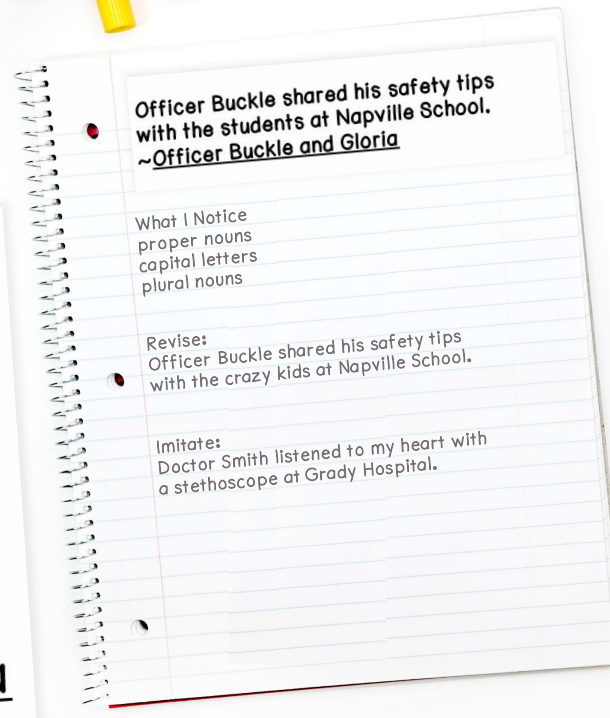 Officer Buckle shared his safety tips
with the students at Napville School.
~Officer Buckle and Gloria
What I Notice
proper nouns
capital letters
plural nouns
Revise:
Officer Buckle shared his safety tips
with the crazy kids at Napville School.
Imitate:
Doctor Smith listened to my heart with
a stethoscope at Grady Hospital.